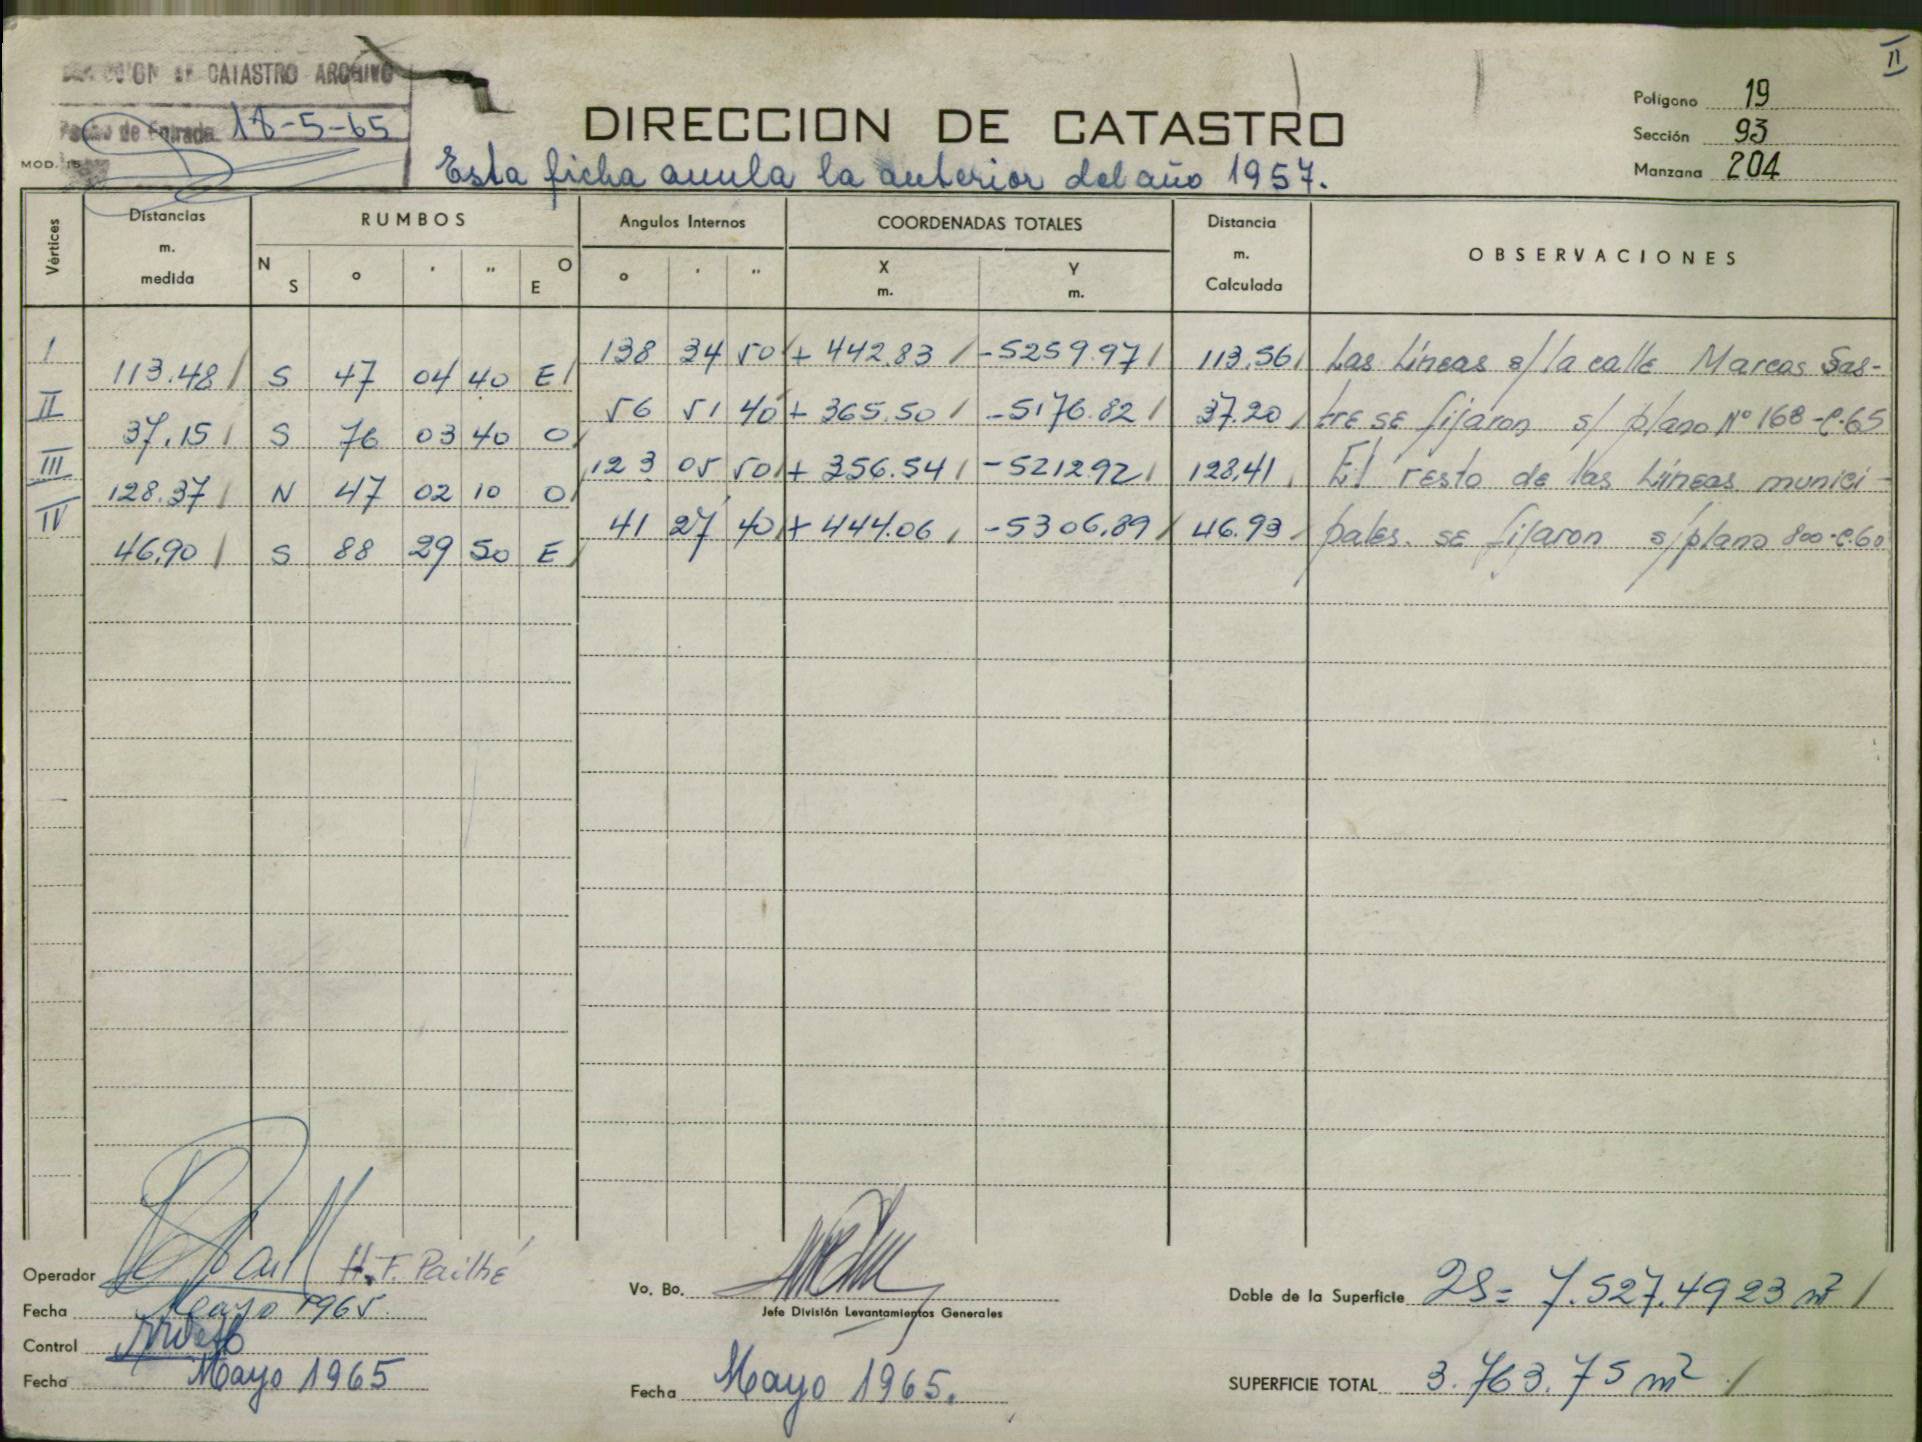 II
DIRECCION DE CATASTRO ARCHIVO
Fecha de Entrada 18-5-65
MOD. 15
DIRECCION DE CATASTRO
Esta ficha anula la anterior del año 1957.
Polígono 19
Sección 93
Manzana 204
Vértices
Distancias m. medida
RUMBOS
N S ° ' " O E
Angulos Internos
° ' "
COORDENADAS TOTALES
X m. Y m.
Distancia m. Calculada
OBSERVACIONES
I 138 34 50 + 442.83 -5259.97 113.56 Las Líneas s/la calle Marcos Sas-
113.48 S 47 04 40 E
II 56 51 40 + 365.50 -5176.82 37.20 tre se fijaron s/ plano Nº 168-C-65
37.15 S 76 03 40 O
III 123 05 50 + 356.54 -5212.92 128.41 El resto de las Líneas munici-
128.37 N 47 02 10 O
IV 41 27 40 + 444.06 -5306.89 46.93 pales. se fijaron s/plano 800-C-60
46.90 S 88 29 50 E
Operador H. F. Pailhé
Fecha Mayo 1965.
Control
Fecha Mayo 1965
Vo. Bo.
Jefe División Levantamientos Generales
Fecha Mayo 1965.
Doble de la Superficie 2S= 7.527.4923 m²
SUPERFICIE TOTAL 3.763.75 m²